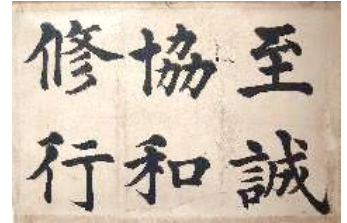 至誠
協和
修行